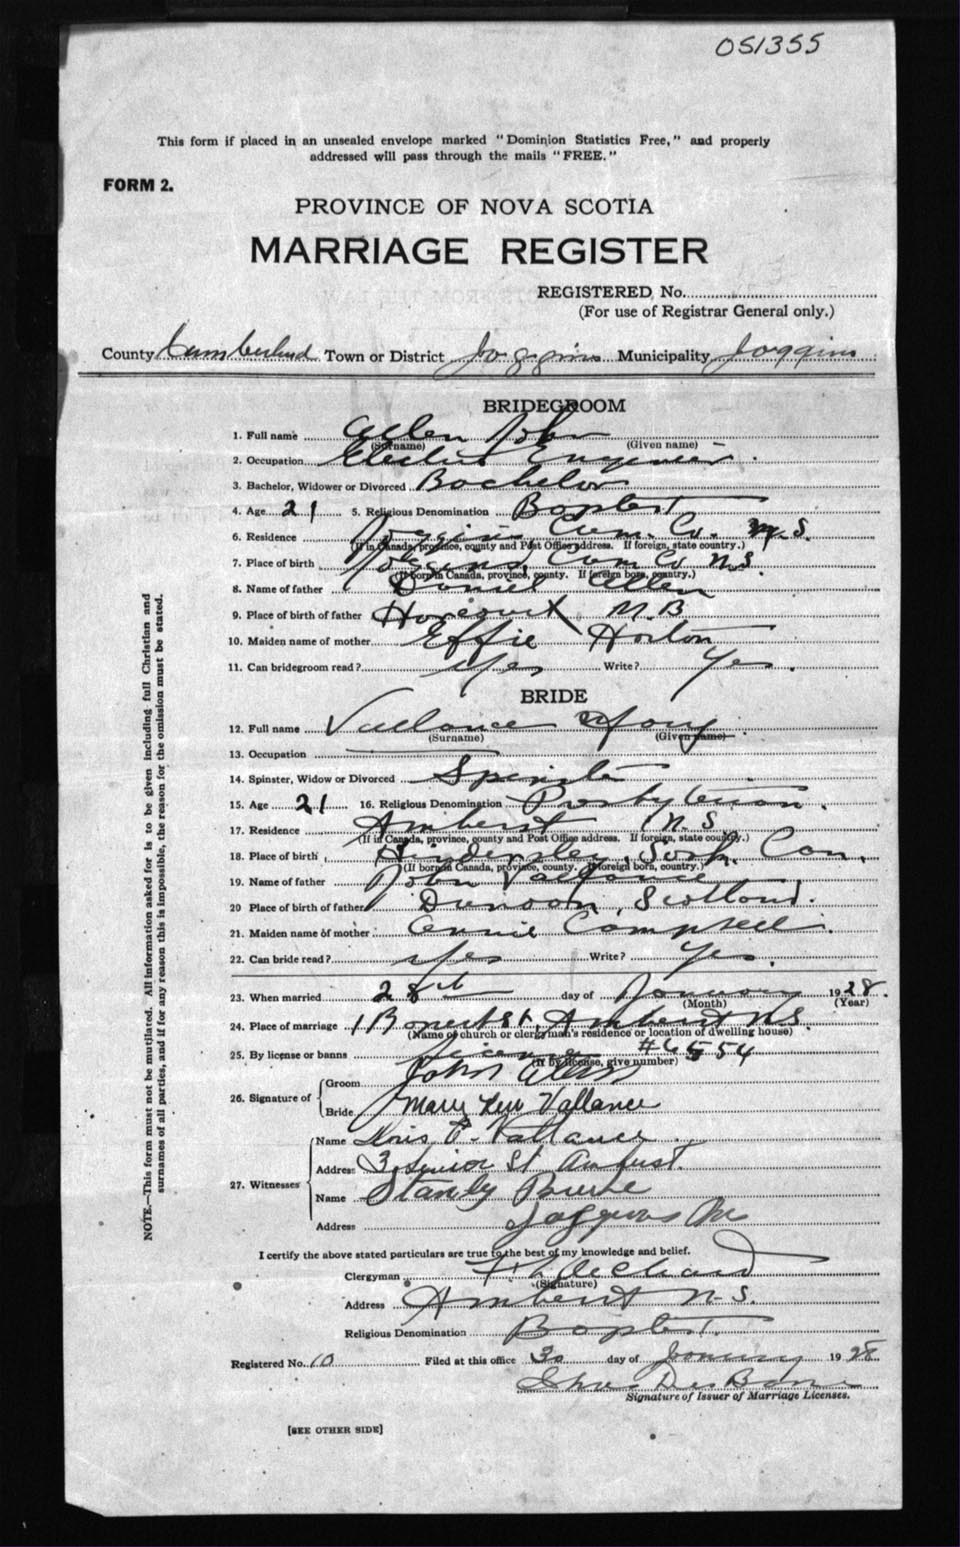 051355
This form if placed in an unsealed envelope marked "Dominion Statistics Free," and properly
addressed will pass through the mails "FREE."
FORM 2.
PROVINCE OF NOVA SCOTIA
MARRIAGE REGISTER
REGISTERED No.
(For use of Registrar General only.)
County Cumberland Town or District Joggins Municipality Joggins
BRIDEGROOM
1. Full name Allen John
(Surname) (Given name)
2. Occupation Electric Engineer
3. Bachelor, Widower or Divorced Bachelor
4. Age 21 5. Religious Denomination Baptist
6. Residence Joggins, Cum. Co. N.S.
(If in Canada, province, county and Post Office address. If foreign, state country.)
7. Place of birth Joggins, Cum Co N.S.
(If born in Canada, province, county. If foreign born, country.)
8. Name of father Daniel Allen
9. Place of birth of father Harcourt N.B
10. Maiden name of mother Effie Horton
11. Can bridegroom read? Yes Write? Yes.
BRIDE
12. Full name Vallance Mary
(Surname) (Given name)
13. Occupation
14. Spinster, Widow or Divorced Spinster
15. Age 21 16. Religious Denomination Presbyterian.
17. Residence Amherst N.S
(If in Canada, province, county and Post Office address. If foreign, state country.)
18. Place of birth Sask. Can.
(If born in Canada, province, county. If foreign born, country.)
19. Name of father John Vallance
20 Place of birth of father Dunoon, Scotland.
21. Maiden name of mother Annie Campbell.
22. Can bride read? Yes Write? Yes.
23. When married 28th day of January 1928.
(Month) (Year)
24. Place of marriage St, Amherst N.S.
(Name of church or clergyman's residence or location of dwelling house)
25. By license or banns License #6554
(If by license, give number)
26. Signature of
Groom John Allen
Bride Mary Vallance
27. Witnesses
Name Doris E. Vallance
Address 3 Junior St Amherst.
Name Stanly Burke
Address Joggins
I certify the above stated particulars are true to the best of my knowledge and belief.
Clergyman
(Signature)
Address Amherst N.S.
Religious Denomination Baptist.
Registered No. 10 Filed at this office 30 day of January 1928
Signature of Issuer of Marriage Licenses.
[SEE OTHER SIDE]
NOTE.—This form must not be mutilated. All information asked for is to be given including full Christian and
surnames of all parties, and if for any reason this is impossible, the reason for the omission must be stated.